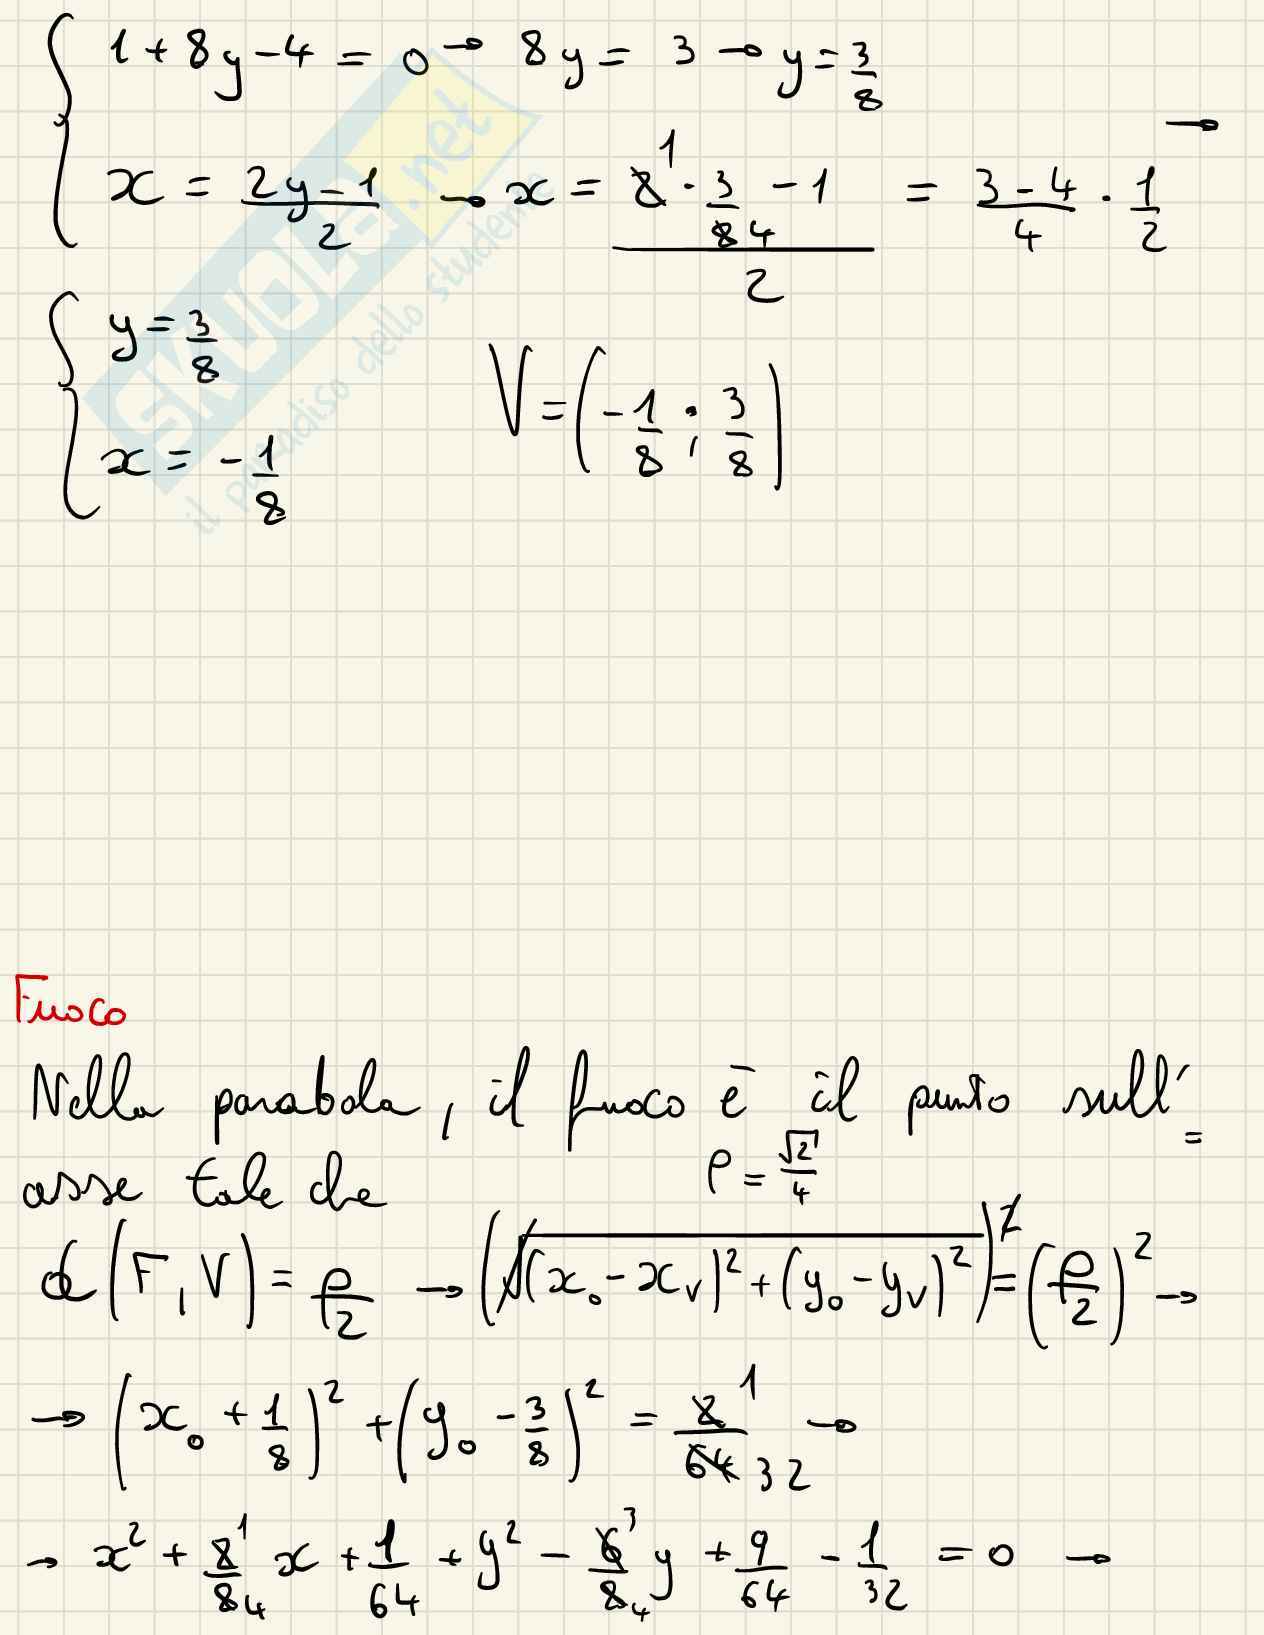 1 + 8y - 4 = 0 → 8y = 3 → y = 3/8
x = (2y - 1)/2 → x = (2̸¹ · 3/8̸ 4 - 1)/2 = (3 - 4)/4 · 1/2 →
y = 3/8
x = -1/8
V = (-1/8 ; 3/8)
SKUOLA.net
il paradiso dello studente
Fuoco
Nella parabola, il fuoco è il punto sull'=
asse tale che
ρ = √2/4
d(F, V) = ρ/2 → (√((x₀ - x_V)² + (y₀ - y_V)²))² = (ρ/2)² →
→ (x₀ + 1/8)² + (y₀ - 3/8)² = 2̸ 1/6̸4̸ 32 →
→ x² + 2̸ 1/8̸ 4 x + 1/64 + y² - 6̸ 3/8̸ 4 y + 9/64 - 1/32 = 0 →